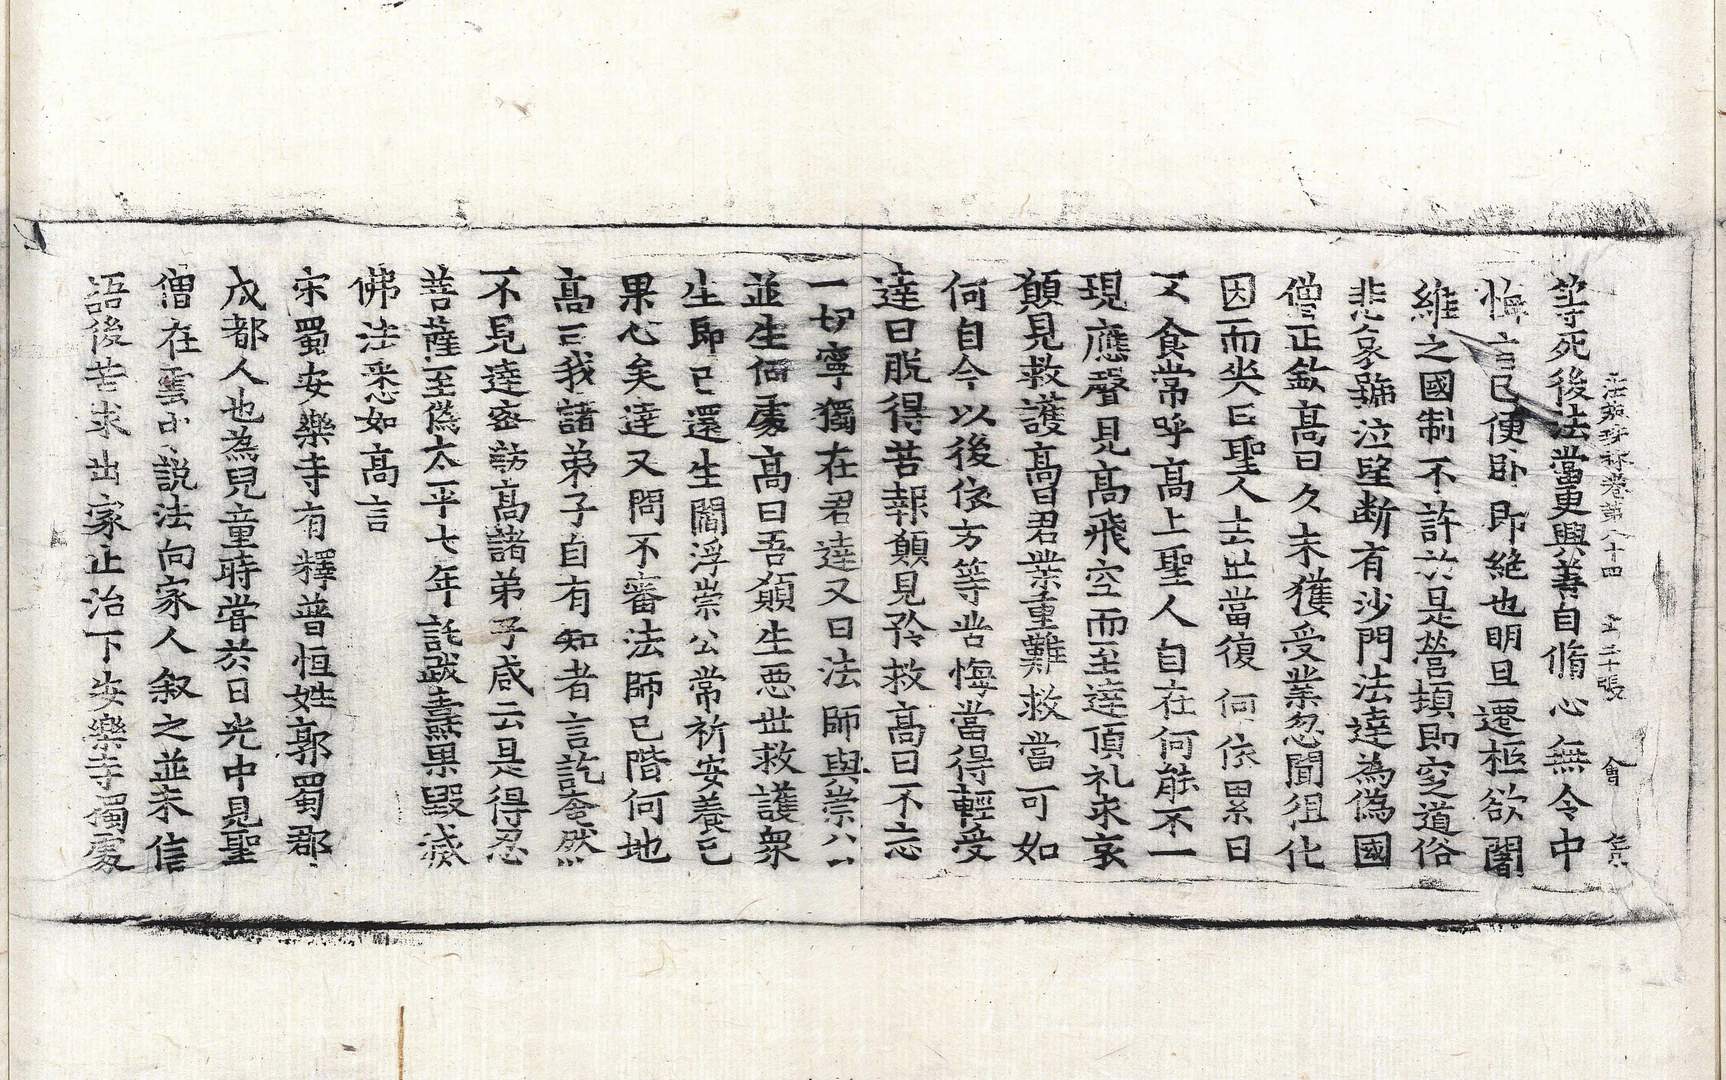 法苑珎林卷第八十四 㐧二十張 會
等死後法當更興善自脩心無令中
悔言已便卧即絶也明旦遷柩欲闍
維之國制不許於是營墳即窆道俗
悲哀號泣望断有沙門法達為偽國
僧正欽高日久未獲受業忽聞殂化
因而哭曰聖人去世當復何依累日
不食常呼高上聖人自在何能不一
現應聲見高飛空而至達頂礼求哀
願見救護高曰君業重難救當可如
何自今以後依方等苦悔當得輕受
達曰脱得苦報願見矜救高曰不忘
一切寧獨在君達又曰法師與崇公
並生何處高曰吾願生悪世救護衆
生即已還生閻浮崇公常祈安養已
果心矣達又問不審法師已階何地
高曰我諸弟子自有知者言訖奄然
不見達密訪高諸弟子咸云是得忍
菩薩至偽太平七年託跋燾果毀滅
佛法悉如高言
宋蜀安樂寺有釋普恒姓郭蜀郡
成都人也為兒童時甞於日光中見聖
僧在雲中說法向家人叙之並未信
語後苦求出家止治下安樂寺獨處